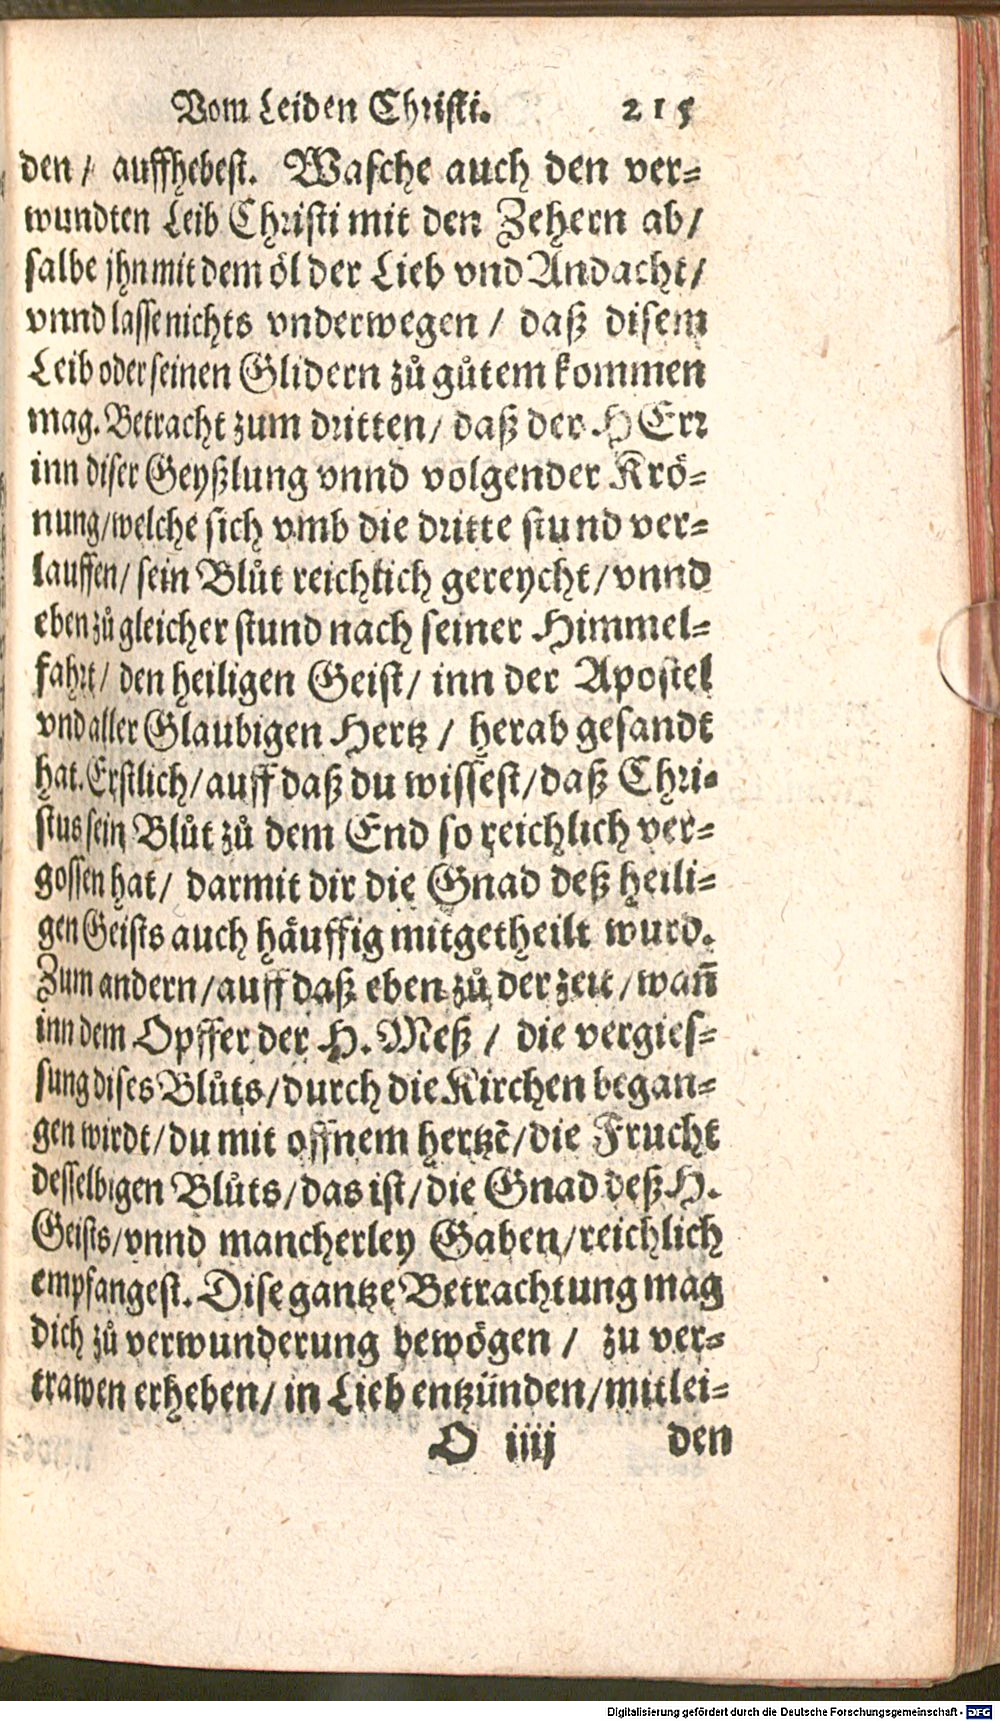 Vom Leiden Christi. 215
den / auffhebest. Wasche auch den ver=
wundten Leib Christi mit den Zehern ab /
salbe jhn mit dem öl der Lieb vnd Andacht /
vnnd lasse nichts vnderwegen / daß disem
Leib oder seinen Glidern zů gůtem kommen
mag. Betracht zum dritten / daß der HErr
inn diser Geyßlung vnnd volgender Krö=
nung / welche sich vmb die dritte stund ver=
lauffen / sein Blůt reichlich gereycht / vnnd
eben zů gleicher stund nach seiner Himmel=
fahrt / den heiligen Geist / inn der Apostel
vnd aller Glaubigen Hertz / herab gesandt
hat. Erstlich / auff daß du wissest / daß Chri=
stus sein Blůt zů dem End so reichlich ver=
gossen hat / darmit dir die Gnad deß heili=
gen Geists auch häuffig mitgetheilt wurd.
Zum andern / auff daß eben zů der zeit / wañ
inn dem Opffer der H. Meß / die vergies=
sung dises Blůts / durch die Kirchen began=
gen wirdt / du mit offnem hertzē / die Frucht
desselbigen Blůts / das ist / die Gnad deß H.
Geists / vnnd mancherley Gaben / reichlich
empfangest. Dise gantze Betrachtung mag
dich zů verwunderung bewögen / zu ver=
trawen erheben / in Lieb entzünden / mitlei=
O iiij den
Digitalisierung gefördert durch die Deutsche Forschungsgemeinschaft - DFG